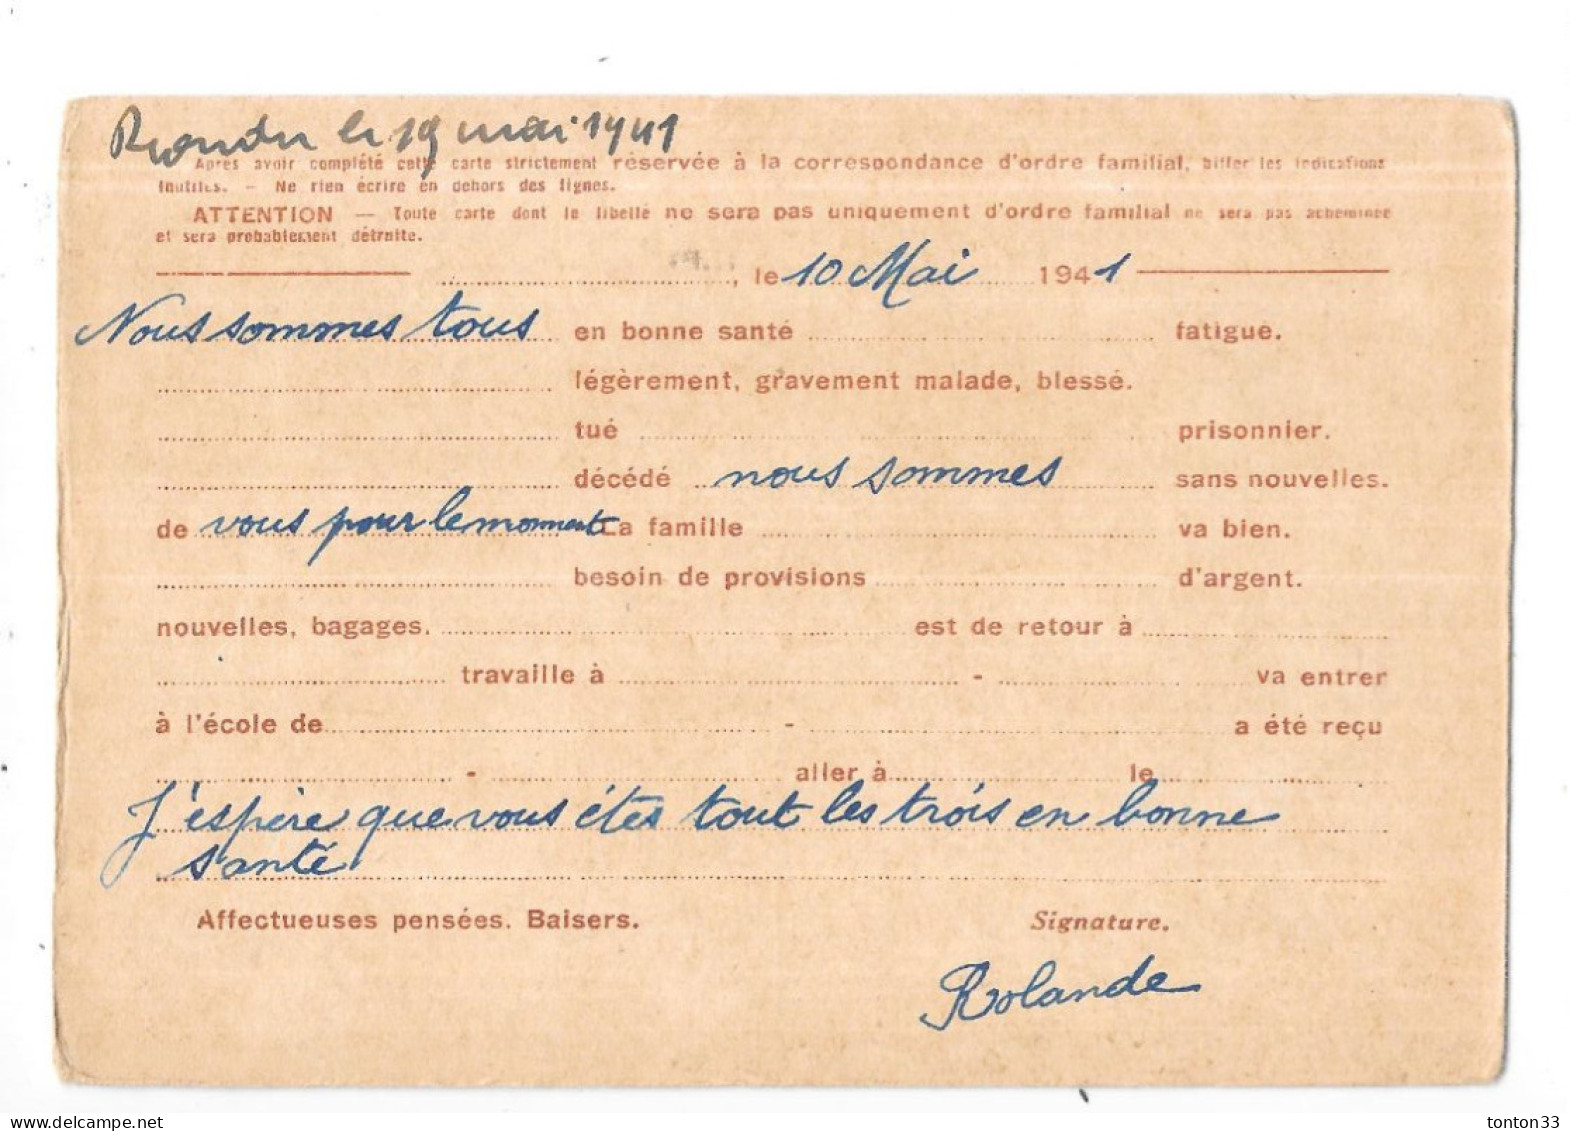 Repondu le 19 mai 1941
Après avoir complété cette carte strictement réservée à la correspondance d'ordre familial, biffer les indications
inutiles. — Ne rien écrire en dehors des lignes.
ATTENTION — Toute carte dont le libellé ne sera pas uniquement d'ordre familial ne sera pas acheminée
et sera probablement détruite.
, le 10 Mai 1941
Nous sommes tous en bonne santé fatigué.
légèrement, gravement malade, blessé.
tué prisonnier.
décédé nous sommes sans nouvelles.
de vous pour le moment La famille va bien.
besoin de provisions d'argent.
nouvelles, bagages. est de retour à
travaille à - va entrer
à l'école de - a été reçu
- aller à le
J'espère que vous étes tout les trois en bonne
santé
Affectueuses pensées. Baisers. Signature.
Rolande
https://www.delcampe.net tonton33